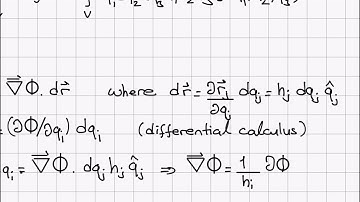 ∇⃗Φ. dr⃗ where dr⃗ = ∂r⃗ⱼ/∂qⱼ dqⱼ = hⱼ dqⱼ q̂ⱼ
= (∂Φ/∂qᵢ) dqᵢ (differential calculus)
qᵢ = ∇⃗Φ. dqⱼ hⱼ q̂ⱼ ⇒ ∇⃗Φ = 1/hᵢ ∂Φ